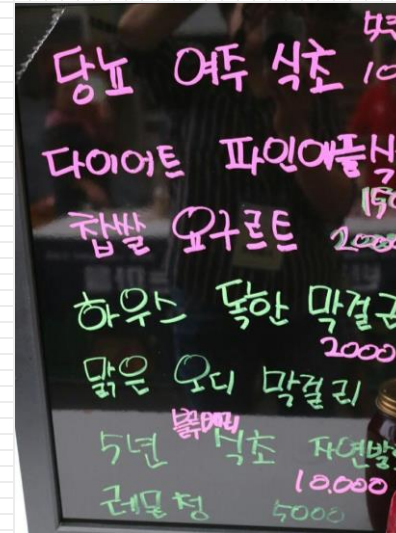 당뇨 여주 식초 10
다이어트 파인애플식
150
찹쌀 요구르트 2000
하우스 독한 막걸리
2000
맑은 오디 막걸리
블루베리
5년 식초 자연발
10,000
레몬청 5000